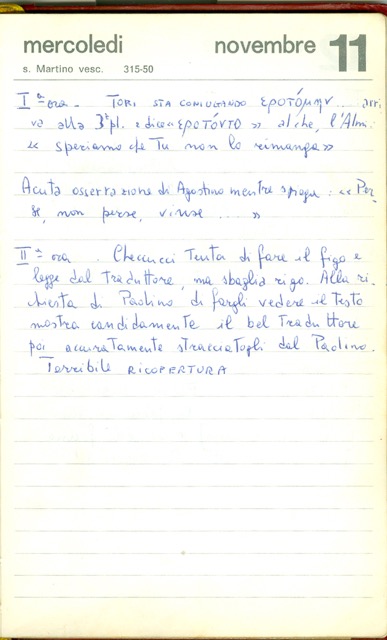 mercoledi novembre 11
s. Martino vesc. 315-50
Iª ora. TORI STA CONIUGANDO ἐροτόμην... arri
va alla 3ª pl. e dice «ἐροτόντο» al che, l'Alm.
« speriamo che Tu non lo rimanga»
Acuta osservazione di Agostino mentre spiega: «Per
se, non perse, vinse ....»
IIª ora. Checcucci Tenta di fare il figo e
legge dal Traduttore, ma sbaglia rigo. Alla ri-
chiesta di Paolino di fargli vedere il testo
mostra candidamente il bel Traduttore
poi accuratamente stracciatogli dal Paolino.
Terribile RICOPERTURA